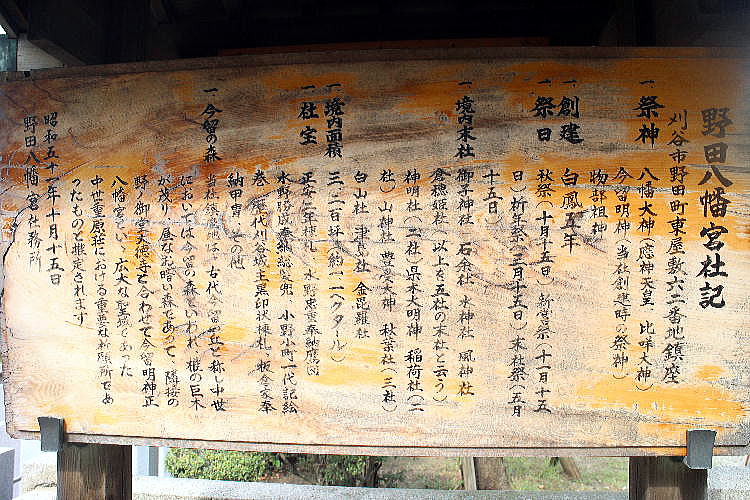 野田八幡宮社記
刈谷市野田町東屋敷六二番地鎮座
一 祭神 八幡大神(應神天皇、比咩大神)
今留明神(当社創建時の祭神)
物部祖神
一 創建 白鳳五年
一 祭日 秋祭(十月十五日)新嘗祭(十一月十五
日)祈年祭(三月十五日)末社祭(五月
十五日)
一 境内末社 御子神社 石余社 水神社 風神社
倉穂姫社(以上を五社の末社と云う)
神明社(二社)県木大明神 稲荷社(二
社)山神社 豊受大神 秋葉社(三社)
白山社 津島社 金毘羅社
一 境内面積 三、三二〇坪(約一・一ヘクタール)
一 社宝 正安二年棟札、水野忠重奉納鷹図
水野勝成奉納総製兜 小野小町一代記絵
巻、歴代刈谷城主黒印状棟札、板倉家奉
納甲冑、その他
一 今留の森 当社鎮座地は、古代今留の丘と称し中世
においては今留の森といわれ、椎の巨木
が茂り、昼なお暗い森であって、隣接の
野々御堂天徳寺と合わせて今留明神正
八幡宮という広大な聖域であった
中世重原荘における重要な祈願所であ
ったものと推定されます
昭和五十二年十月十五日
野田八幡宮社務所